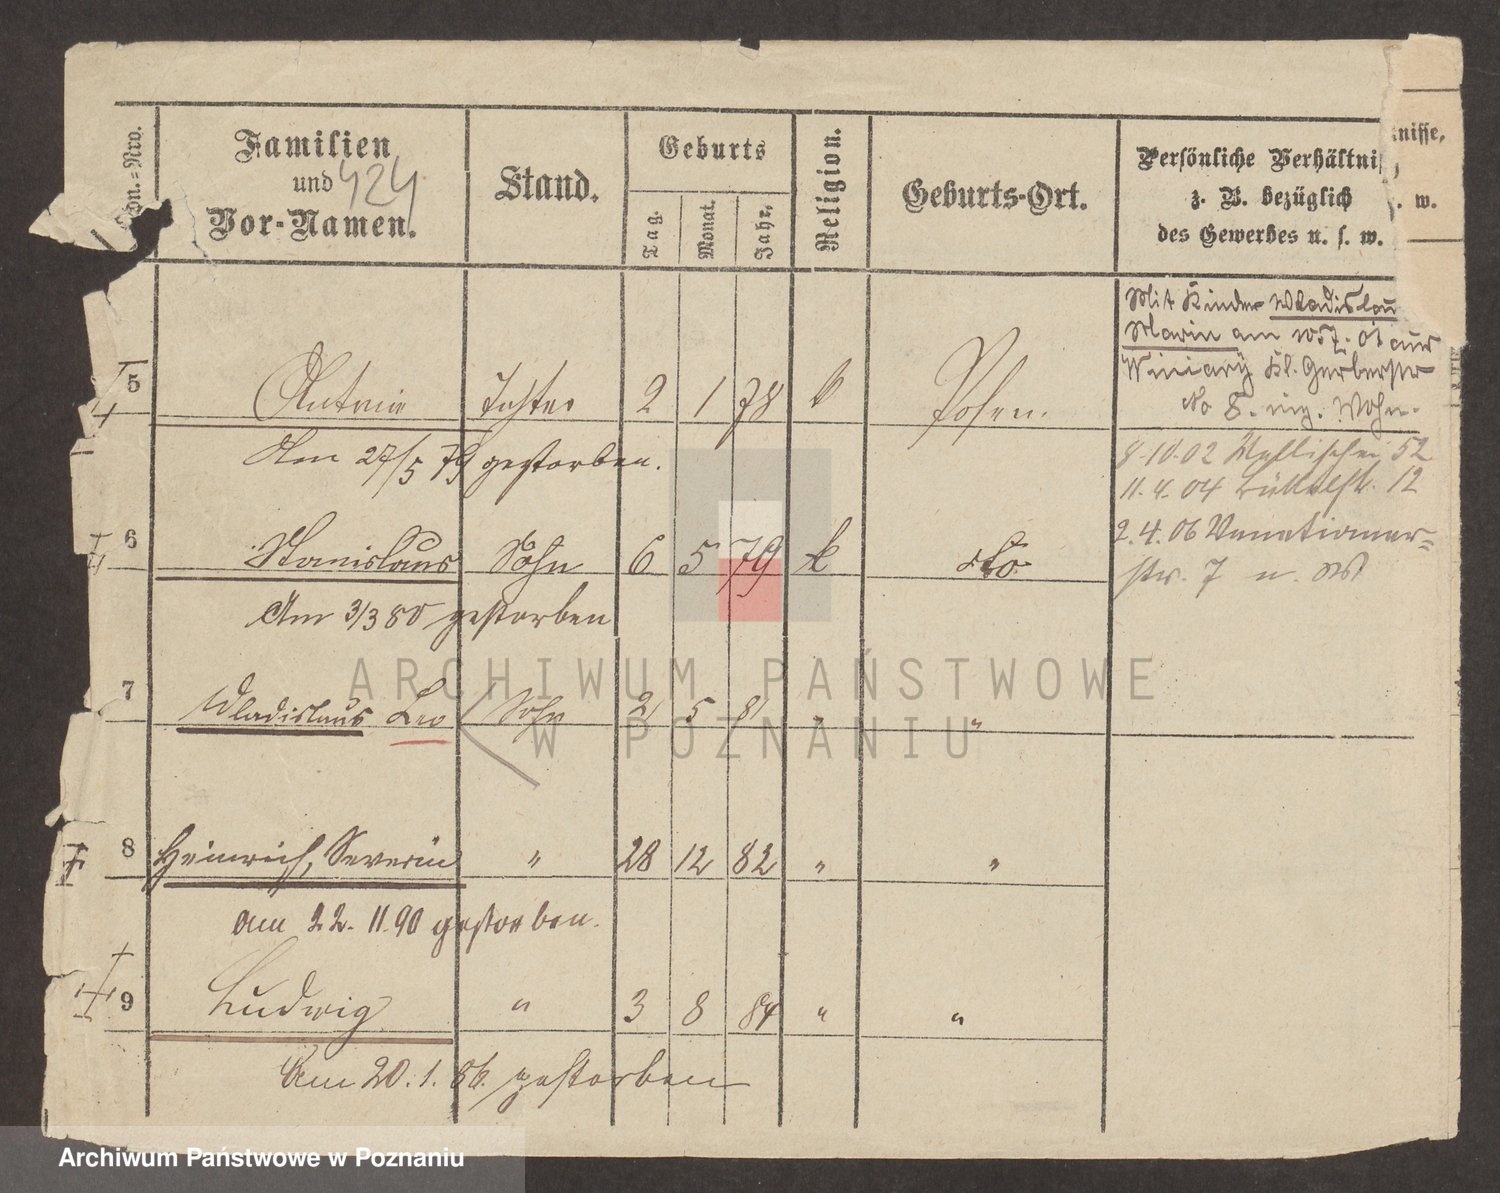 Con.-Nro.
Familien
und
Vor-Namen.
424
Stand.
Geburts
Tag.
Monat.
Jahr.
Religion.
Geburts-Ort.
Persönliche Verhältnis
z. B. bezüglich
des Gewerbes u. s. w.
tnisse,
. w.
Mit Kinder Wladislau
Marin am 10.7.01 aus
Winiary Kl. Gerberstr
No 8. Wohn.
5 Antonie Tochter 2 1 78 k Posen.
Am 27/5 79 gestorben.
8.10.02 Wallischei 52
11.4.04 12
2.4.06
str. 7
6 Stanislaus Sohn 6 5 79 k dto
Am 3/3 80 gestorben
7 Wladislaus Leo Sohn 2 5 81 " "
8 Heinrich, Severin " 28 12 82 " "
am 22. 11. 90 gestorben.
9 Ludwig " 3 8 84 " "
Am 20. 1. 86. gestorben
ARCHIWUM PAŃSTWOWE
W POZNANIU
Archiwum Państwowe w Poznaniu